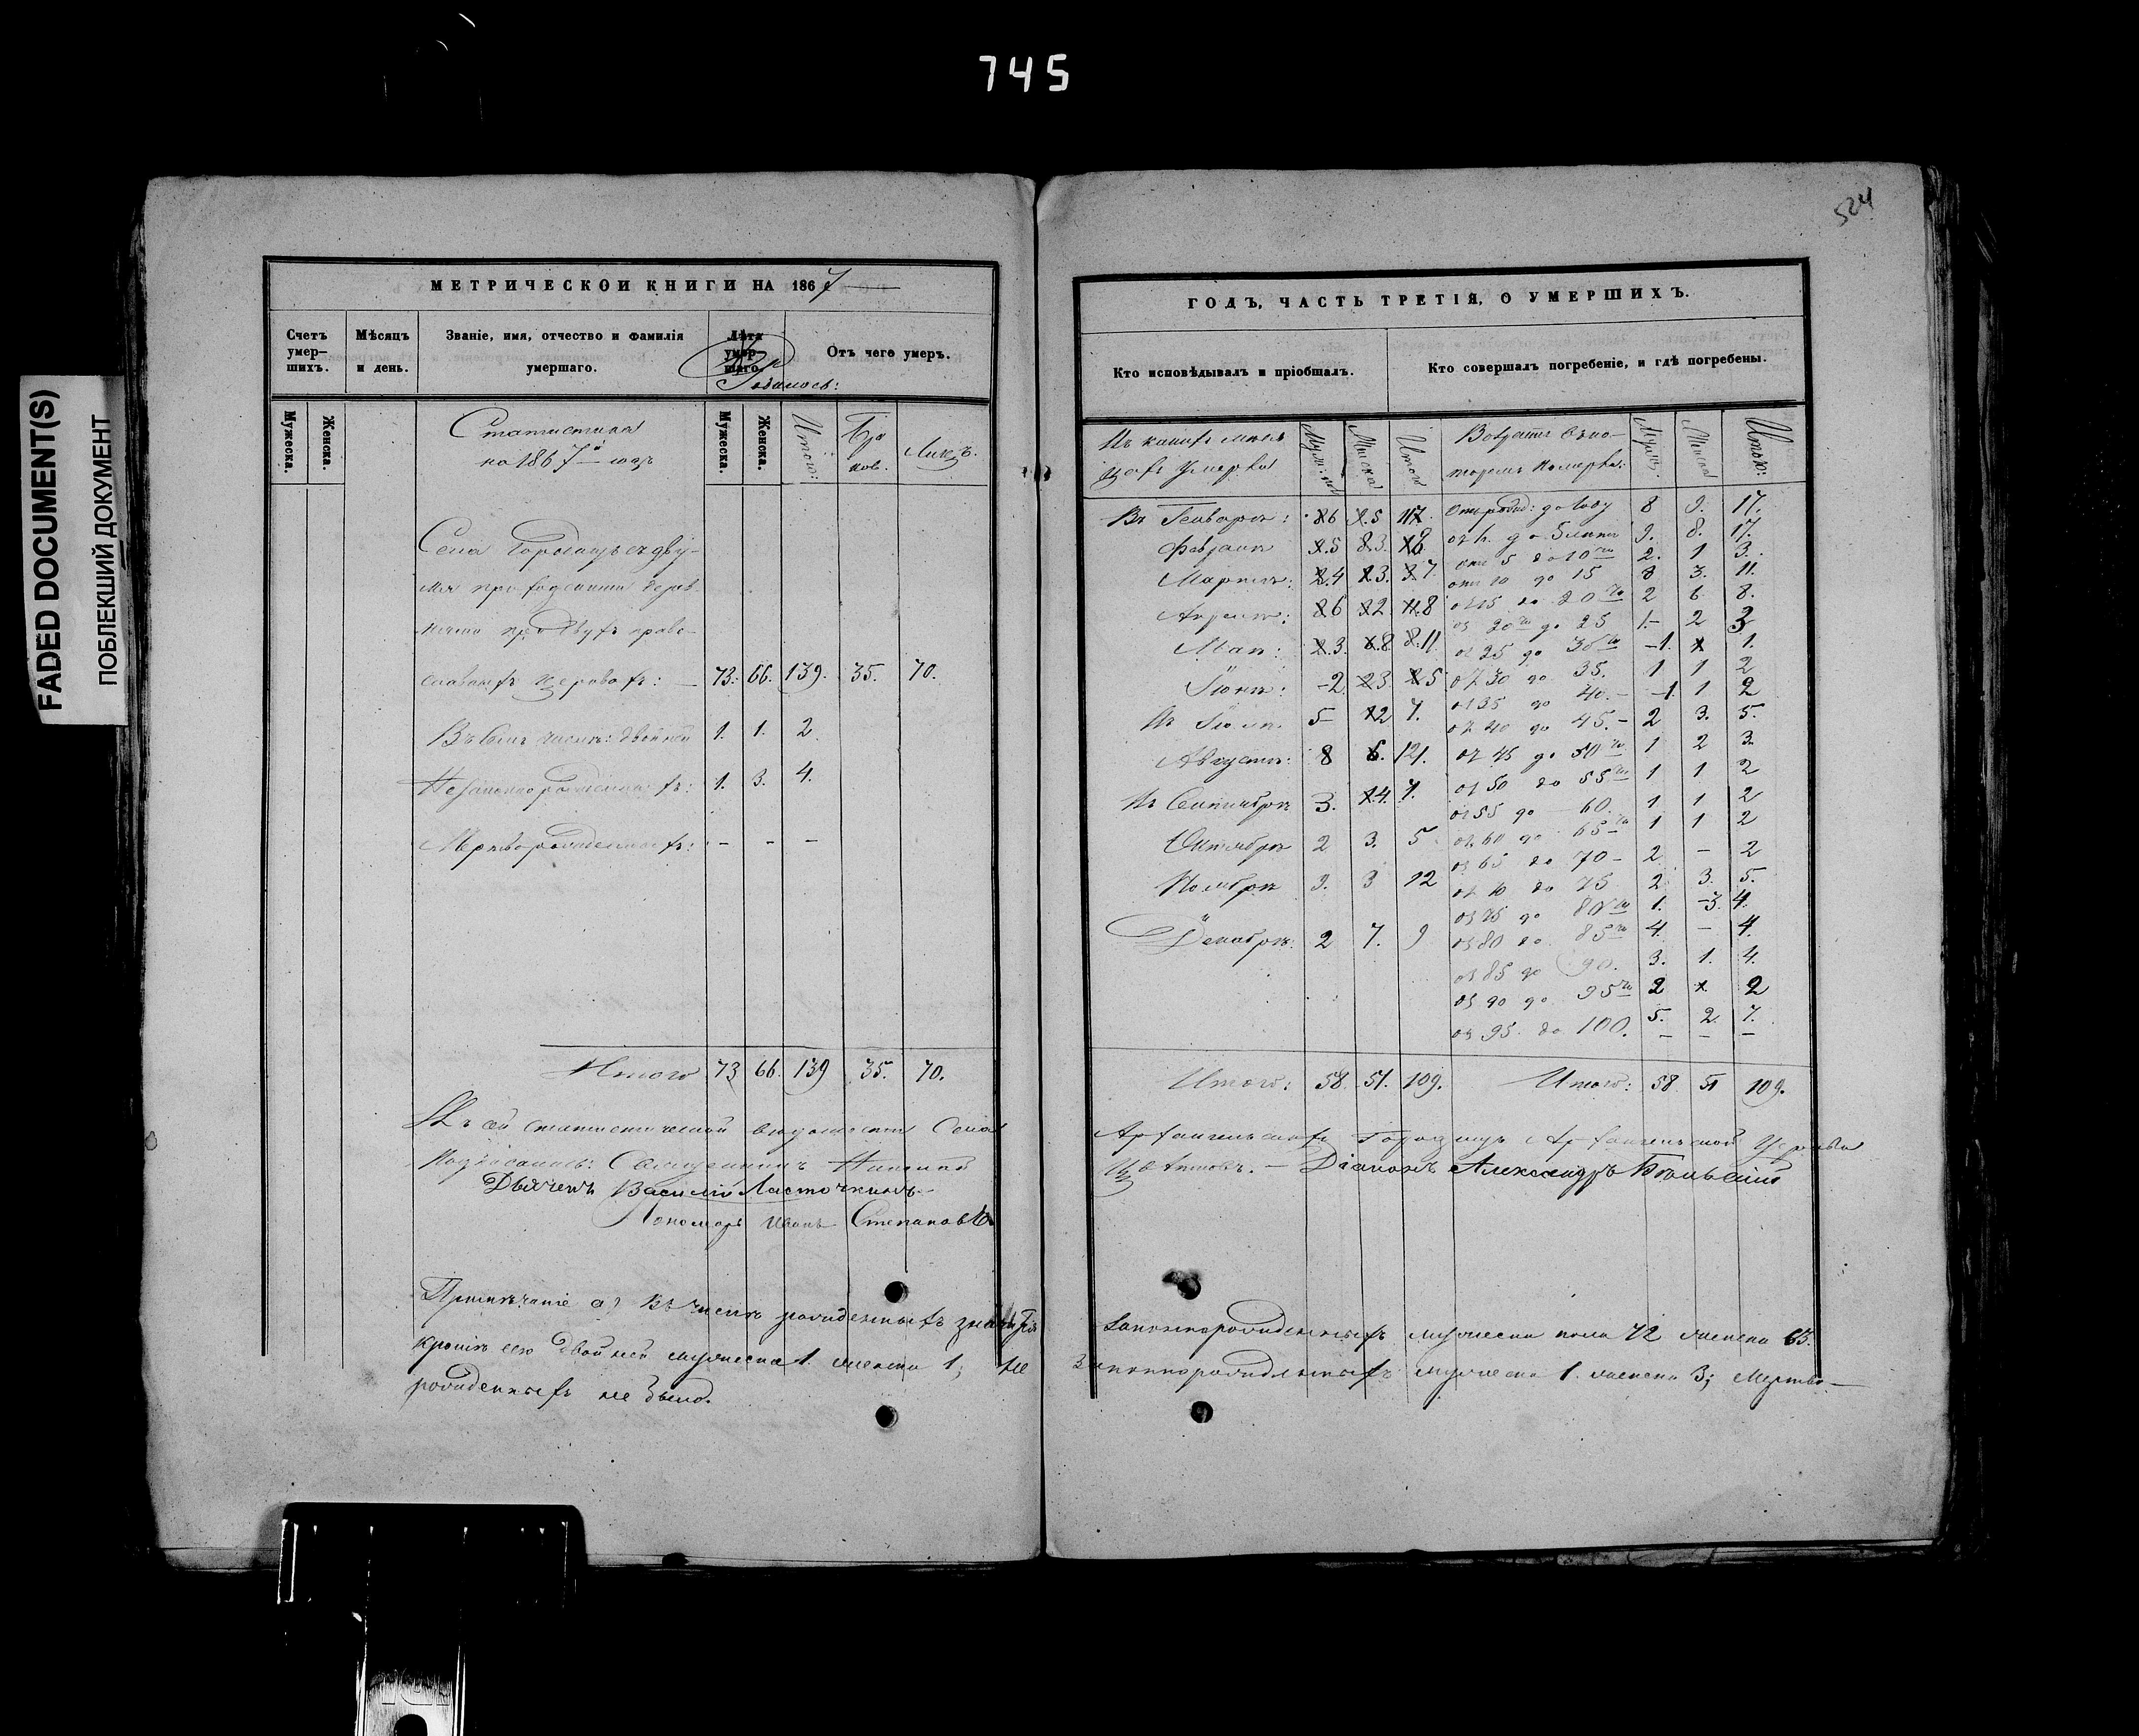 745
524
FADED DOCUMENT(S)
ПОБЛЕКШИЙ ДОКУМЕНТ
МЕТРИЧЕСКОЙ КНИГИ НА 1867
Счетъ умер-шихъ.
Мѣсяцъ и день.
Званіе, имя, отчество и фамилія умершаго.
Лѣта умер-шаго.
Родилось:
Отъ чего умеръ.
Мужеска.
Женска.
Статистика
на 1867й годъ
Мужеска.
Женска.
Итого:
Бра
ков.
Лицъ.
Села Городищъ съ дву-
мя
славныхъ церквахъ: 73. 66. 139. 35. 70.
Въ семъ числѣ: двойней 1. 1. 2.
Незаконнорожденныхъ: 1. 3. 4.
Мертворожденныхъ: - - -
Итого 73 66. 139 35. 70.
Къ сей статистической вѣдомости Села
Подписались: Священникъ Николай
Дьячекъ Василій Ласточкинъ.
Пономарь Иванъ Степановъ
Примѣчаніе а) Въ числѣ рожденныхъ
кромѣ сего двойней мужеска 1. женска 1; Не
рожденныхъ не было.
ГОДЪ, ЧАСТЬ ТРЕТІЯ, О УМЕРШИХЪ.
Кто исповѣдывалъ и пріобщалъ.
Кто совершалъ погребеніе, и гдѣ погребены.
Въ какихъ мѣся
цахъ умерли
Итого
Возрастъ въ ко-
торомъ померли:
Итого:
Въ Генварѣ: 6 5 11 От рожд: до году 8 9. 17.
Февралѣ 5 3. 8 от 1. до 5 лѣтъ 9. 8. 17.
Мартѣ: 4 3. 7. от 5 до 10ти 2. 1 3.
от 10 до 15 8 3. 11.
Апрѣлѣ: 6 2 8 от 15 до 20ти 2 6. 8.
от 20ти до 25 1. 2 3
Маѣ: 3. 8 11 от 25 до 30ти 1. 1.
Іюнѣ: 2 3 5 от 30 до 35. 1 1 2
от 35 до 40. 1. 1 2
Въ Іюлѣ 5 2 7. от 40 до 45. 2 3. 5.
Августѣ: 8 от 45 до 50ти 1 2 3.
от 50 до 55ти 1 1 2
Въ Сентябрѣ 3. 4. 7. от 55 до 60. 1 1 2
Октябрѣ 2 3. 5 от 60 до 65ти 1 1 2
от 65 до 70 2 - 2
Ноябрѣ 9. 3 12 от 70 до 75 2 3. 5.
от 75 до 80ти 1. 3. 4.
Декабрѣ: 2 7. 9 от 80 до 85ти 4. - 4.
от 85 до 90. 3. 1. 4.
от 90 до 95ти 2 2
от 95. до 100. 5. 2. 7.
- - -
Итого: 58. 51. 109. Итого: 58. 51 109.
Архангельскихъ Городищъ Архангельской Церкви
Цвѣтковъ. - Діаконъ Александръ
Законнорожденныхъ мужеска пола 72 женска 63.
законнорожденныхъ мужеска 1. женска 3; Мертво-